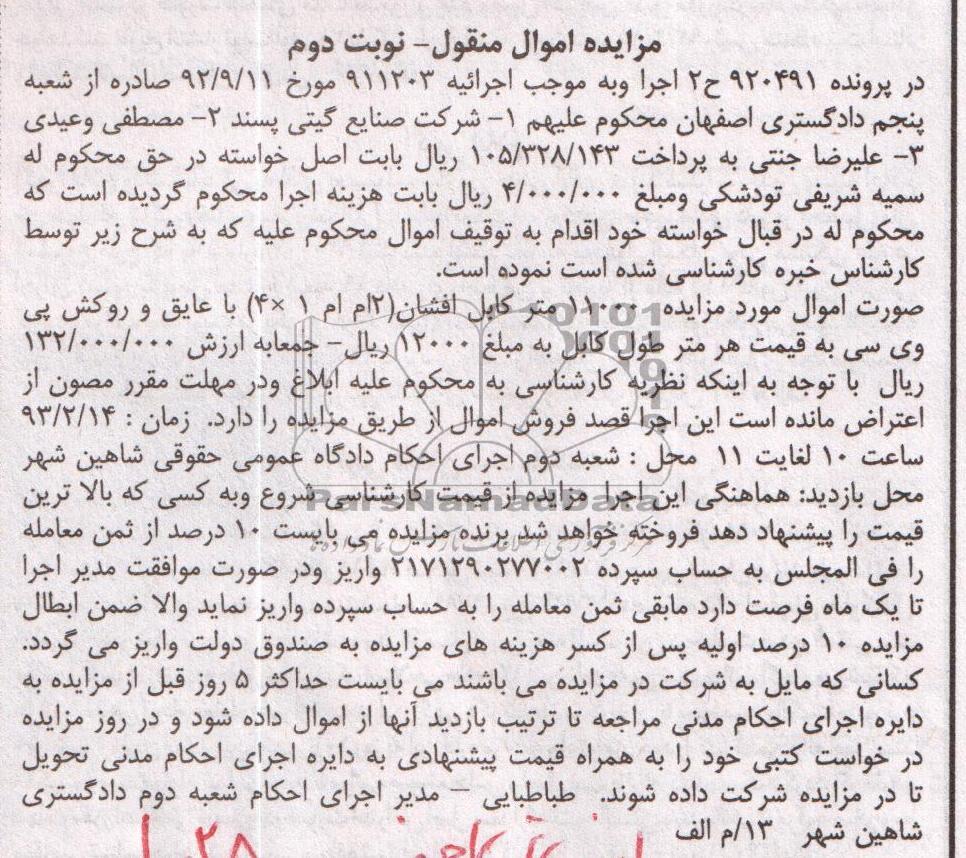 مزایده اموال منقول- نوبت دوم
در پرونده ۹۲۰۴۹۱ ح۲ اجرا وبه موجب اجرائیه ۹۱۱۲۰۳ مورخ ۹۲/۹/۱۱ صادره از شعبه
پنجم دادگستری اصفهان محکوم علیهم ۱- شرکت صنایع گیتی پسند ۲- مصطفی وعیدی
۳- علیرضا جنتی به پرداخت ۱۰۵/۳۲۸/۱۴۳ ریال بابت اصل خواسته در حق محکوم له
سمیه شریفی تودشکی ومبلغ ۴/۰۰۰/۰۰۰ ریال بابت هزینه اجرا محکوم گردیده است که
محکوم له در قبال خواسته خود اقدام به توقیف اموال محکوم علیه که به شرح زیر توسط
کارشناس خبره کارشناسی شده است نموده است.
صورت اموال مورد مزایده ۱۱۰۰۰ متر کابل افشان(۲ام ام ۱ ×۴) با عایق و روکش پی
وی سی به قیمت هر متر طول کابل به مبلغ ۱۲۰۰۰ ریال- جمعابه ارزش ۱۳۲/۰۰۰/۰۰۰
ریال با توجه به اینکه نظریه کارشناسی به محکوم علیه ابلاغ ودر مهلت مقرر مصون از
اعتراض مانده است این اجرا قصد فروش اموال از طریق مزایده را دارد. زمان : ۹۳/۲/۱۴
ساعت ۱۰ لغایت ۱۱ محل : شعبه دوم اجرای احکام دادگاه عمومی حقوقی شاهین شهر
محل بازدید: هماهنگی این اجرا مزایده از قیمت کارشناسی شروع وبه کسی که بالا ترین
ParsNamadData
قیمت را پیشنهاد دهد فروخته خواهد شد برنده مزایده می بایست ۱۰ درصد از ثمن معامله
را فی المجلس به حساب سپرده ۲۱۷۱۲۹۰۲۷۷۰۰۲ واریز ودر صورت موافقت مدیر اجرا
تا یک ماه فرصت دارد مابقی ثمن معامله را به حساب سپرده واریز نماید والا ضمن ابطال
مزایده ۱۰ درصد اولیه پس از کسر هزینه های مزایده به صندوق دولت واریز می گردد.
کسانی که مایل به شرکت در مزایده می باشند می بایست حداکثر ۵ روز قبل از مزایده به
دایره اجرای احکام مدنی مراجعه تا ترتیب بازدید آنها از اموال داده شود و در روز مزایده
در خواست کتبی خود را به همراه قیمت پیشنهادی به دایره اجرای احکام مدنی تحویل
تا در مزایده شرکت داده شوند. طباطبایی – مدیر اجرای احکام شعبه دوم دادگستری
شاهین شهر ۱۳/م الف